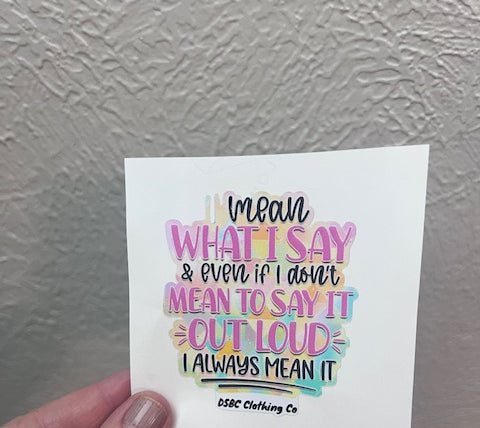 I mean
WHAT I SAY
& even if I don't
MEAN TO SAY IT
OUT LOUD
I ALWAYS MEAN IT
DSBC Clothing Co